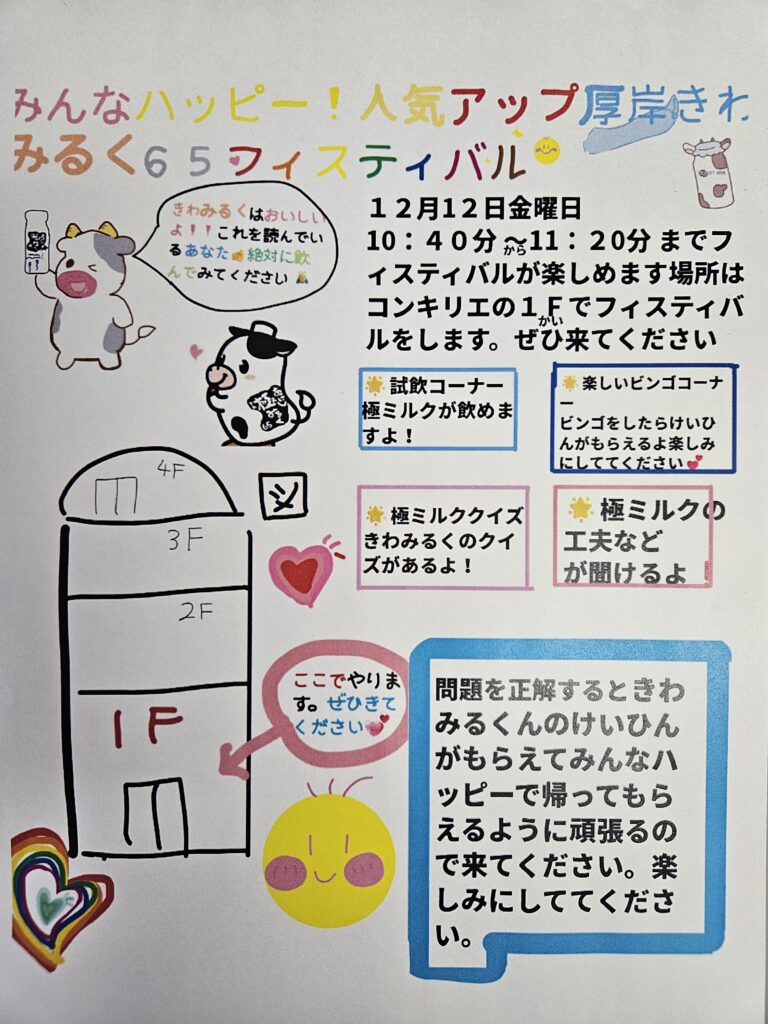 みんなハッピー！人気アップ厚岸きわ
みるく６５フィスティバル
きわみるくはおいしい
よ！！これを読んでい
るあなた絶対に飲
んでみてください
１２月12日金曜日
10：４０分〜から11：２０分 までフ
ィスティバルが楽しめます場所は
コンキリエの１Ｆかいでフィスティバ
ルをします。ぜひ来てください
試飲コーナー
極ミルクが飲めま
すよ！
楽しいビンゴコーナ
ー
ビンゴをしたらけいひ
んがもらえるよ楽しみ
にしててください
極ミルククイズ
きわみるくのクイ
ズがあるよ！
極ミルクの
工夫など
が聞けるよ
4F
3F
2F
1F
ここでやりま
す。ぜひきて
ください
問題を正解するときわ
みるくんのけいひん
がもらえてみんなハ
ッピーで帰ってもら
えるように頑張るの
で来てください。楽
しみにしててくださ
い。